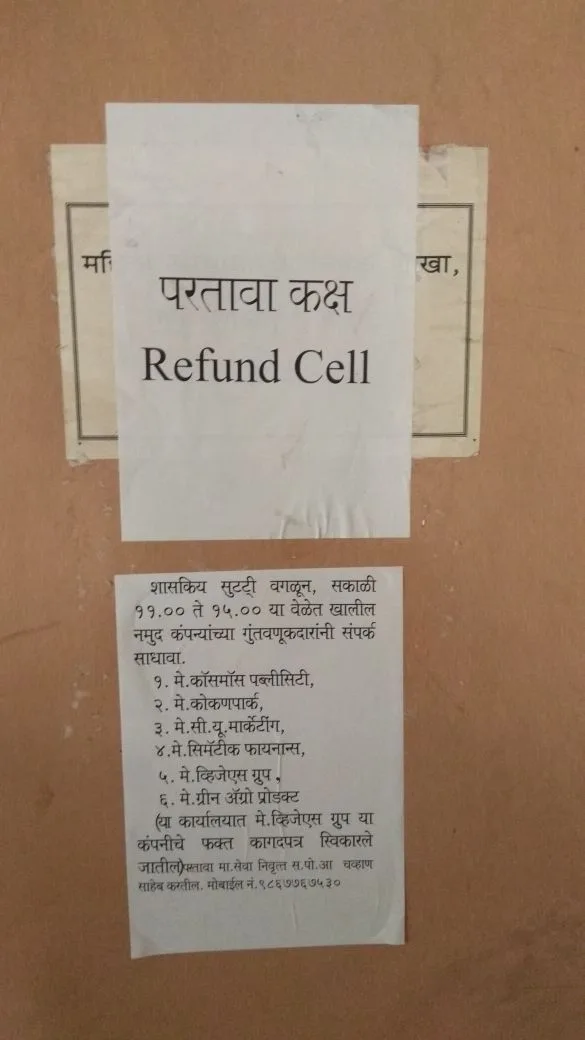 परतावा कक्ष
Refund Cell
खा,
शासकिय सुटटी वगळून, सकाळी
११.०० ते १५.०० या वेळेत खालील
नमुद कंपन्यांच्या गुंतवणूकदारांनी संपर्क
साधावा.
१. मे.कॉसमॉस पब्लीसिटी,
२. मे.कोकणपार्क,
३. मे.सी.यू.मार्केटींग,
४.मे.सिमॅटीक फायनान्स,
५. मे.व्हिजेएस ग्रुप,
६. मे.ग्रीन ॲग्रो प्रोडक्ट
(या कार्यालयात मे.व्हिजेएस ग्रुप या
कंपनीचे फक्त कागदपत्र स्विकारले
जातील)परतावा मा.सेवा निवृत्त स.पो.आ चव्हाण
साहेब करतील. मोबाईल नं.९८६७७६७५३०